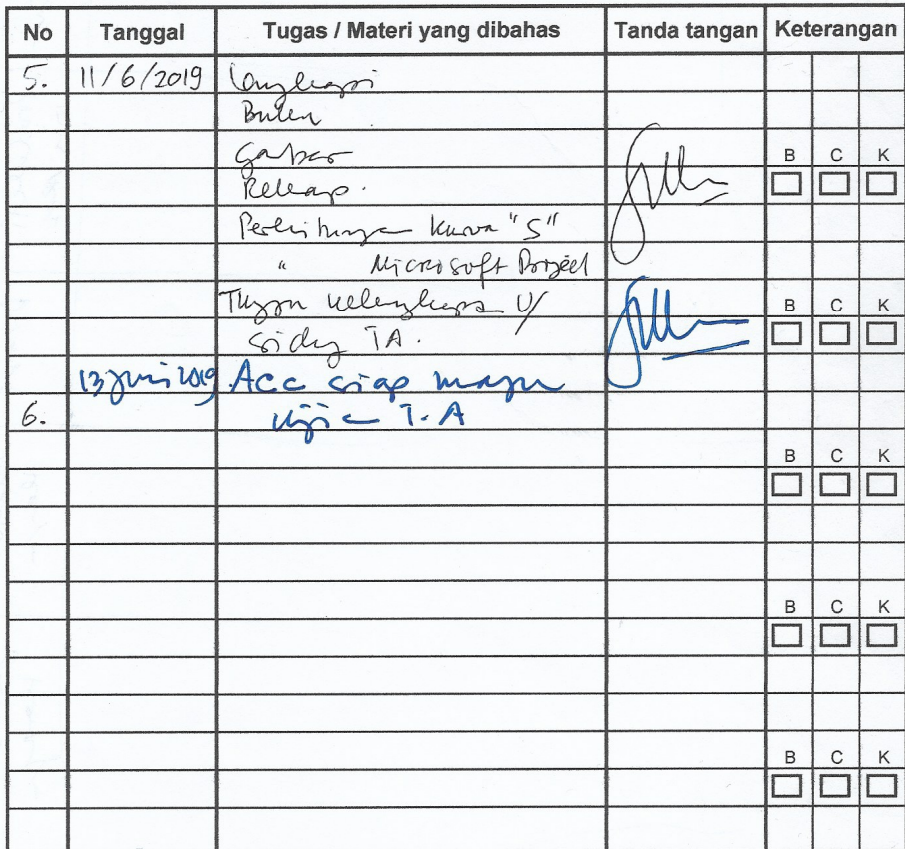 No Tanggal Tugas / Materi yang dibahas Tanda tangan Keterangan
5. 11/6/2019 Lengkapi
Gambar
B C K
Rekap.
Perhitungan Kurva "S"
" Microsoft Project
kelengkapan U/
B C K
sidang TA.
13 Juni 2019 Acc siap maju
6. Ujian T.A
B C K
B C K
B C K